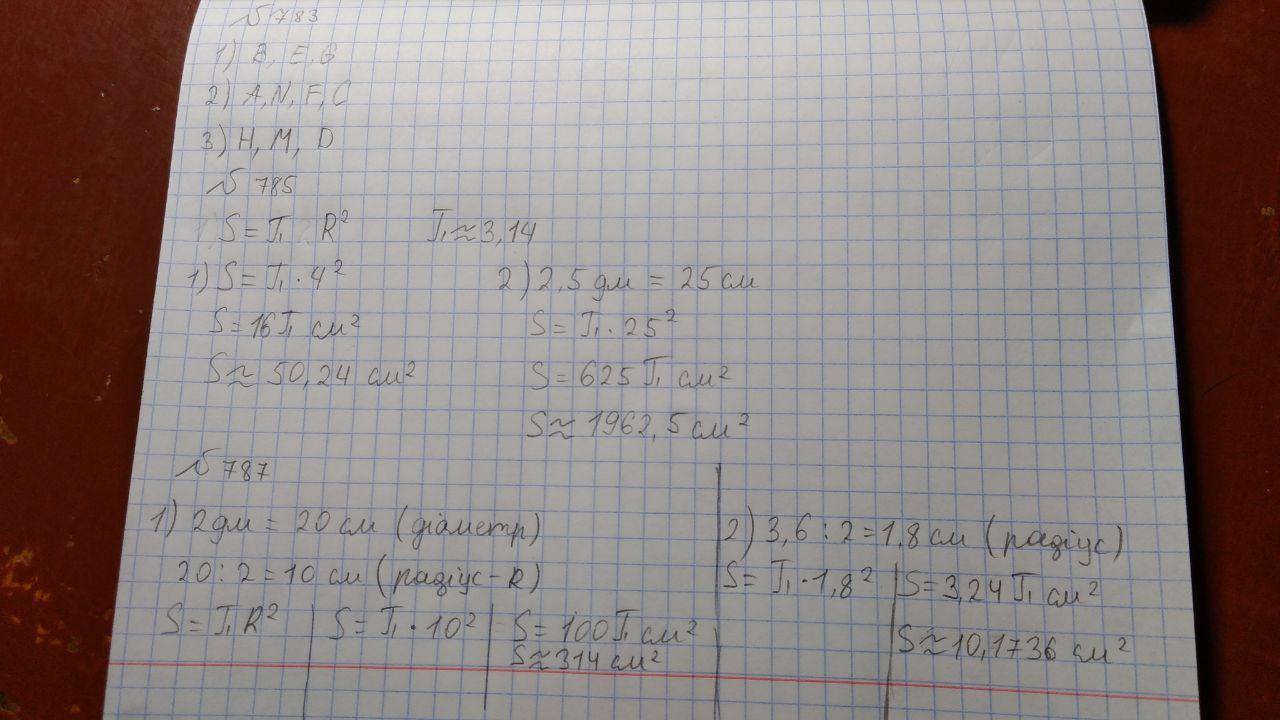 №783
1) B, E, G
2) A, N, F, C
3) H, M, D
№785
S = π R² π ≈ 3,14
1) S = π · 4²
S = 16π см²
S ≈ 50,24 см²
2) 2,5 дм = 25 см
S = π · 25²
S = 625π см²
S ≈ 1962,5 см²
№787
1) 2дм = 20 см (діаметр)
20 : 2 = 10 см (радіус - R)
S = πR² S = π · 10² S = 100π см²
S ≈ 314 см²
2) 3,6 : 2 = 1,8 см (радіус)
S = π · 1,8² S = 3,24π см²
S ≈ 10,1736 см²